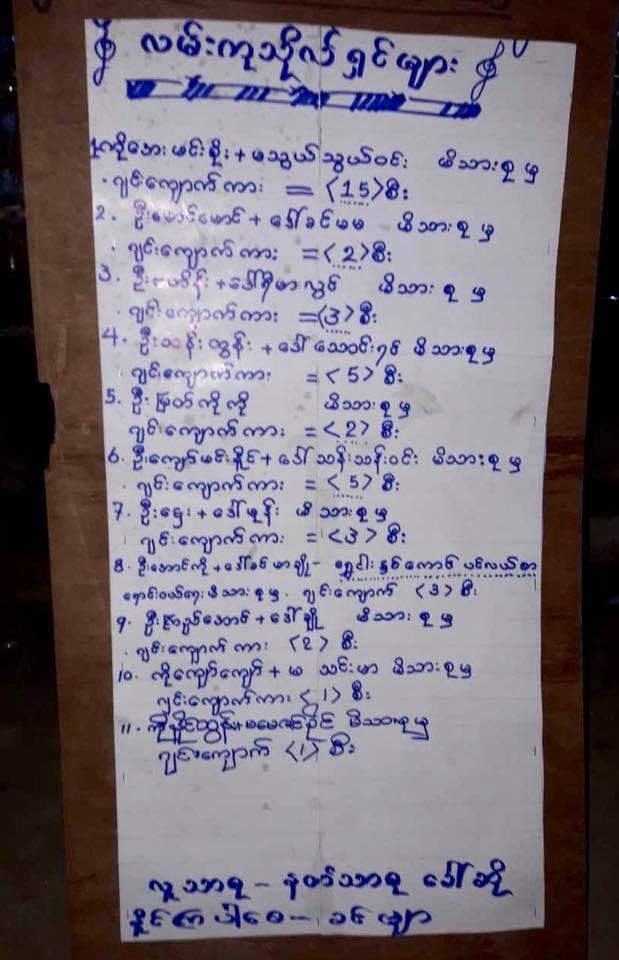 လမ်းကုသိုလ်ရှင်များ
၁. ကိုအေးမင်းစိုး + မသွယ်သွယ်ဝင်း မိသားစု မှ
. ဂျင်ကျောက်ကား = <15> စီး
2. ဦးမောင်မောင် + ဒေါ်ခင်မမ မိသားစု မှ
. ဂျင်းကျောက်ကား = <2> စီး
3. +ဒေါ်ရီမာလွင် မိသားစု မှ
. ဂျင်းကျောက်ကား = <3> စီး
4. ဦးသန်းထွန်း + ဒေါ် မိသားစု မှ
ဂျင်းကျောက်ကား = <5> စီး
5. ဦးမြတ်ကိုကို မိသားစု မှ
ဂျင်းကျောက်ကား = <2> စီး
6. ဦးကျော်မင်းနိုင် + ဒေါ်သန်းသန်းဝင်း မိသားစု မှ
. ဂျင်းကျောက်ကား = <5> စီး
7. ဦးဌေး + ဒေါ်မုန်း မိသားစု မှ
ဂျင်းကျောက်ကား = <3> စီး
8. ဦးအောင်ကို + ဒေါ်ခင်မာချို - ရွှေငါးနှစ်ကောင် ပင်လယ်စာ
ရောင်းဝယ်ရေး မိသားစု မှ . ဂျင်းကျောက် <3> စီး
9. ဦး + ဒေါ်ချို မိသားစု မှ
. ဂျင်းကျောက်ကား <2> စီး
10. ကိုကျော်ကျော် + မ သင်းမာ မိသားစု မှ
ဂျင်းကျောက်ကား <1> စီး
11. မိသားစု မှ
ဂျင်းကျောက် <1> စီး
လူသာစု - နတ်သာစု ခေါ်ဆို
နိုင်ကြပါစေ - ခင်ဗျာ